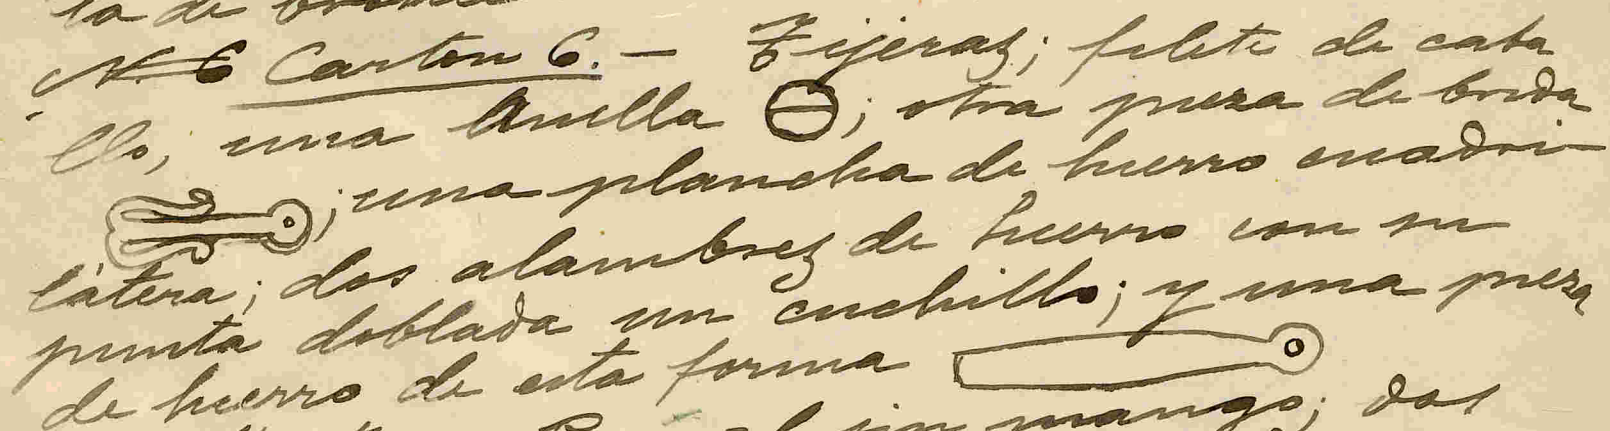 la de bronce
N. 6 Carton 6. — Tijeras; filete de caba
llo, una Anilla ; otra pieza de brida
; una plancha de hierro cuadri
látera; dos alambres de hierro con su
punta doblada un cuchillo; y una pieza
de hierro de esta forma
sin mango; dos